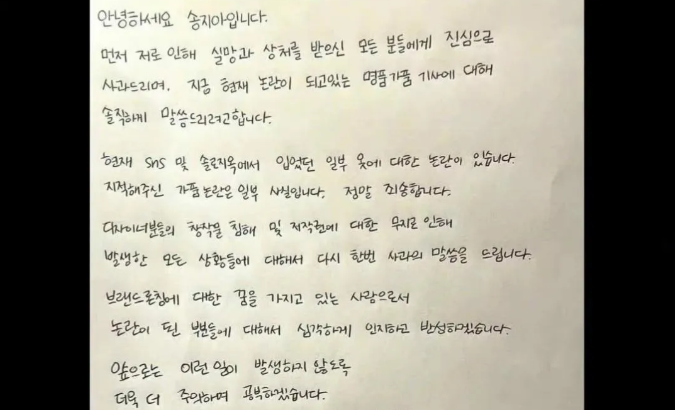 안녕하세요 송지아입니다.
먼저 저로 인해 실망과 상처를 받으신 모든 분들에게 진심으로
사과드리며, 지금 현재 논란이 되고있는 명품가품 기사에 대해
솔직하게 말씀드리려고합니다.
현재 SNS 및 솔로지옥에서 입었던 일부 옷에 대한 논란이 있습니다.
지적해주신 가품논란은 일부 사실입니다. 정말 죄송합니다.
디자이너분들의 창작물 침해 및 저작권에 대한 무지로 인해
발생한 모든 상황들에 대해서 다시 한번 사과의 말씀을 드립니다.
브랜드론칭에 대한 꿈을 가지고 있는 사람으로서
논란이 된 부분들에 대해서 심각하게 인지하고 반성하겠습니다.
앞으로는 이런 일이 발생하지 않도록
더욱 더 주의하며 공부하겠습니다.